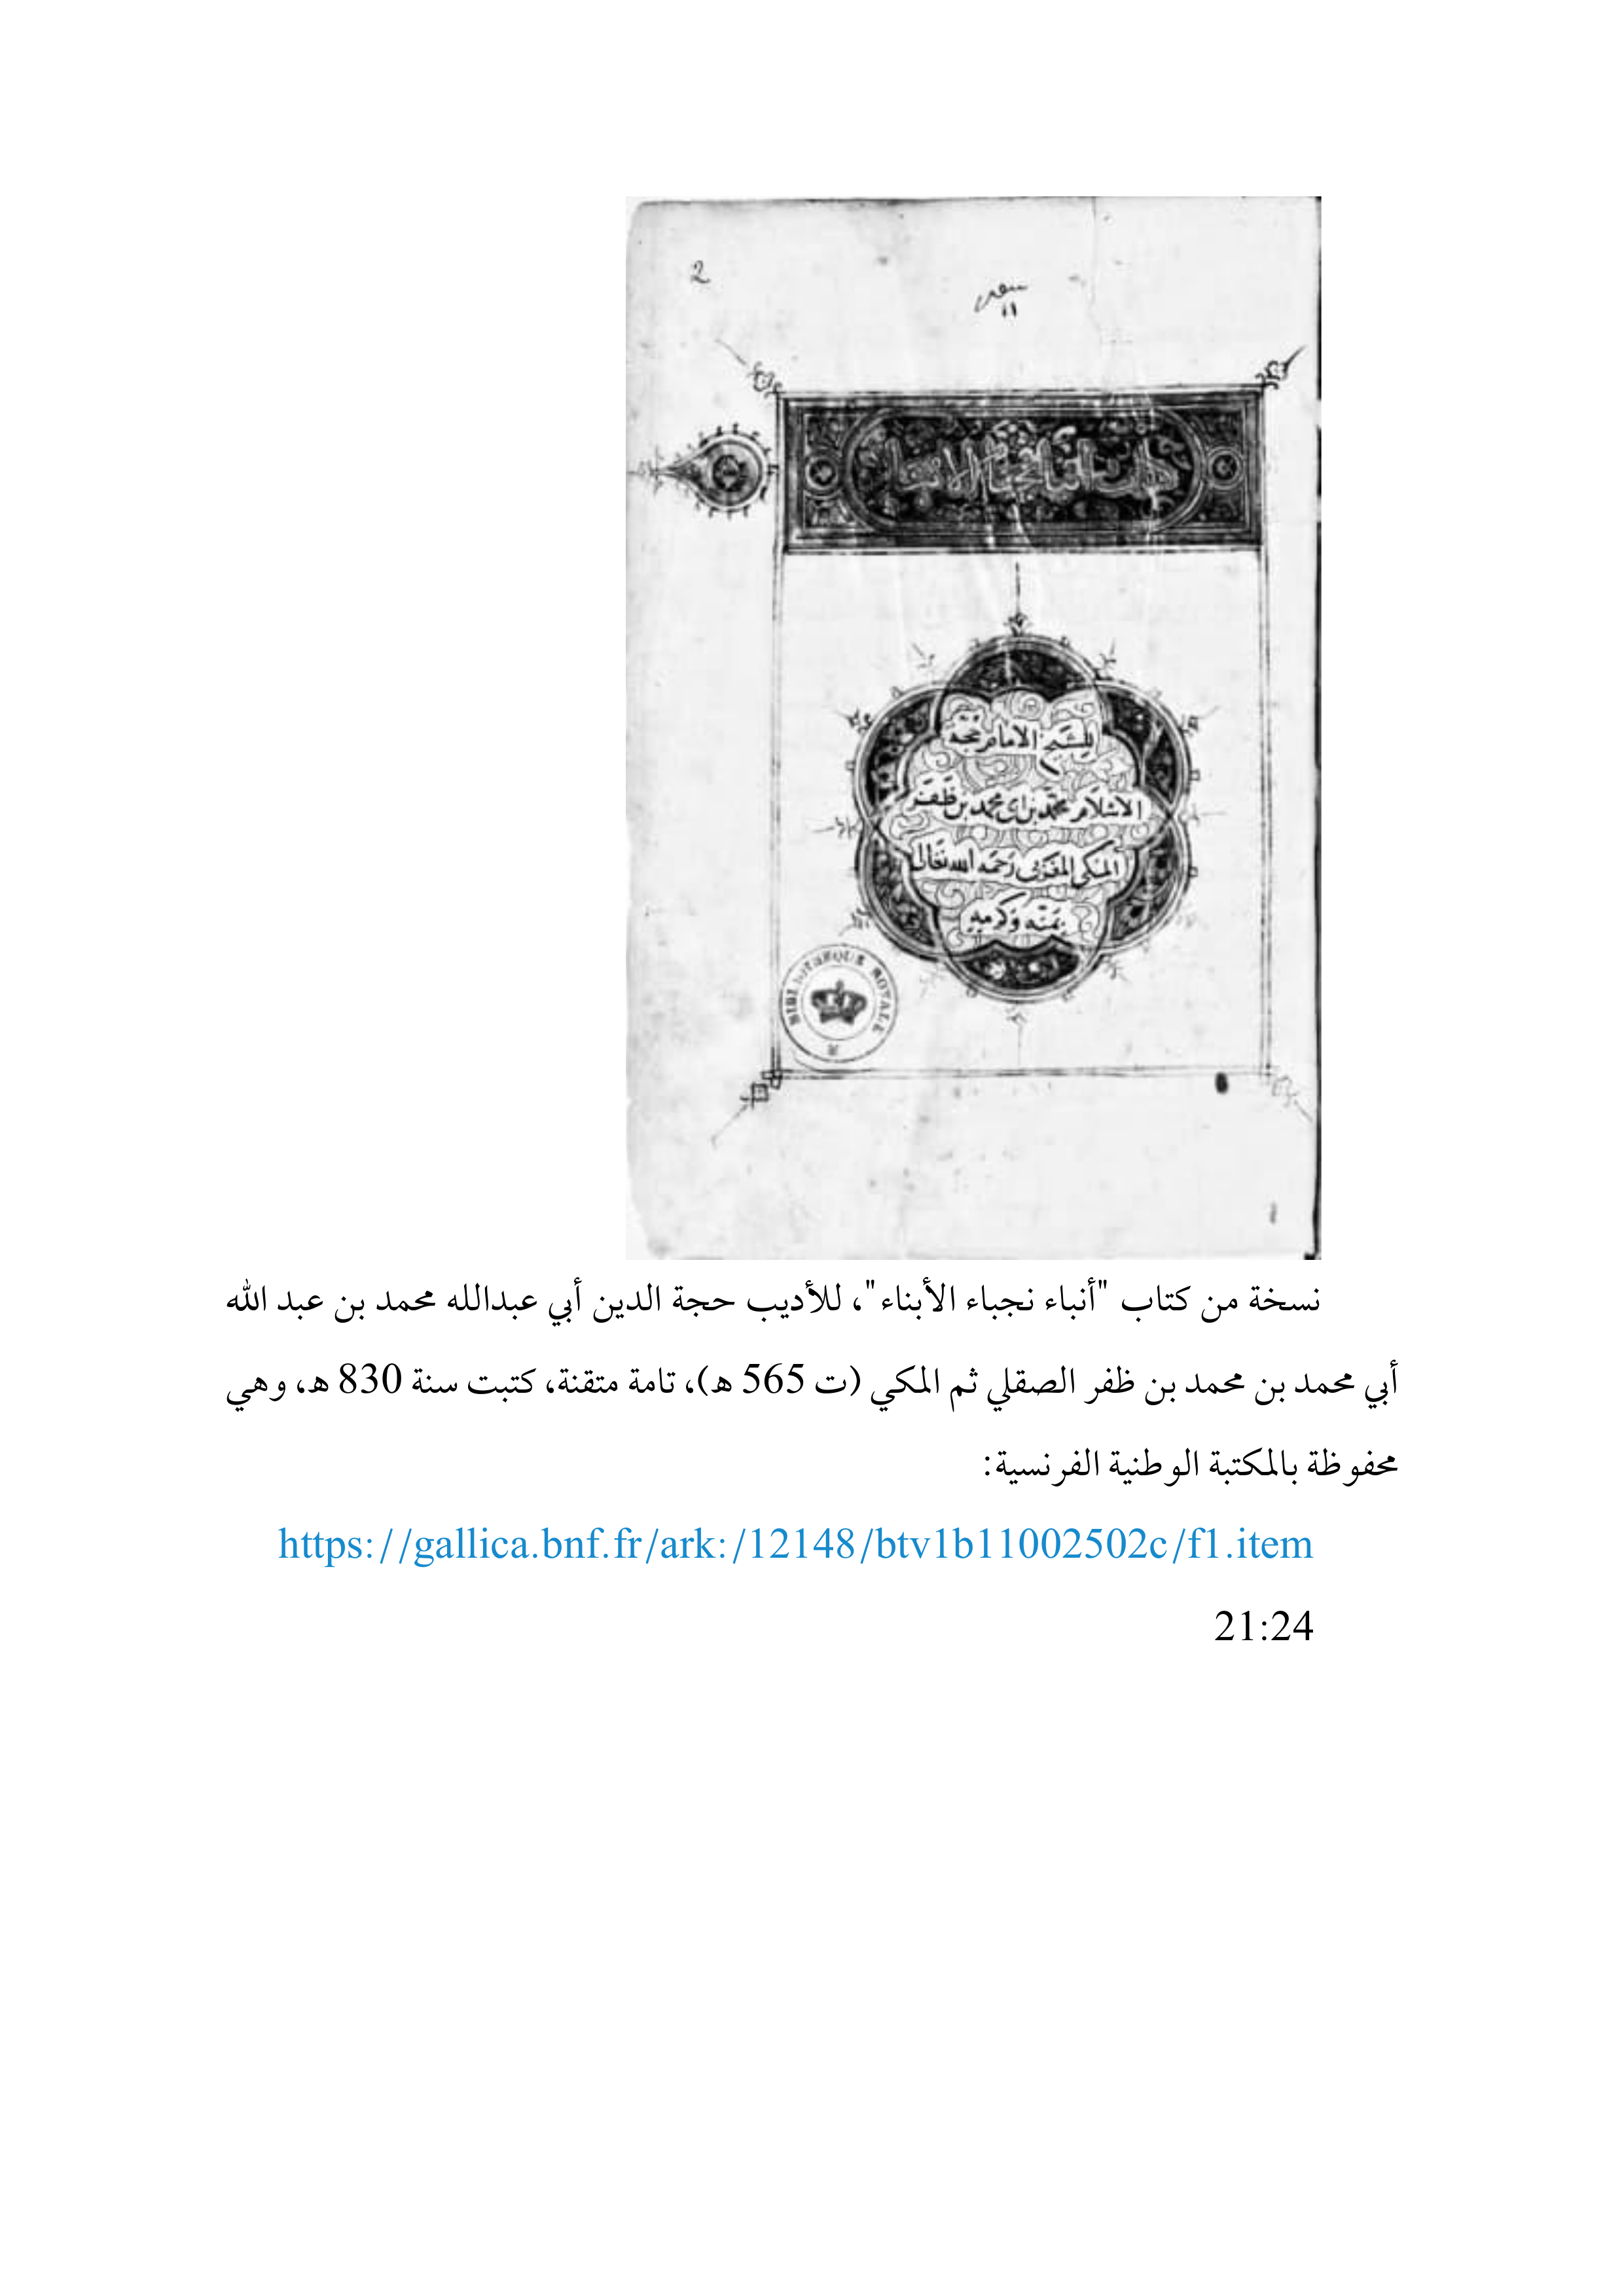 2
كتاب أنباء نجباء الأبناء
للشيخ الامام حجة
الاسلام محمد بن ابى محمد بن ظفر
المكى المغربى رحمه الله تعالى
بمنه وكرمه
BIBLIOTHEQUE ROYALE
نسخة من كتاب "أنباء نجباء الأبناء"، للأديب حجة الدين أبي عبدالله محمد بن عبد الله
أبي محمد بن محمد بن ظفر الصقلي ثم المكي (ت 565 هـ)، تامة متقنة، كتبت سنة 830 هـ، وهي
محفوظة بالمكتبة الوطنية الفرنسية:
https://gallica.bnf.fr/ark:/12148/btv1b11002502c/f1.item
21:24